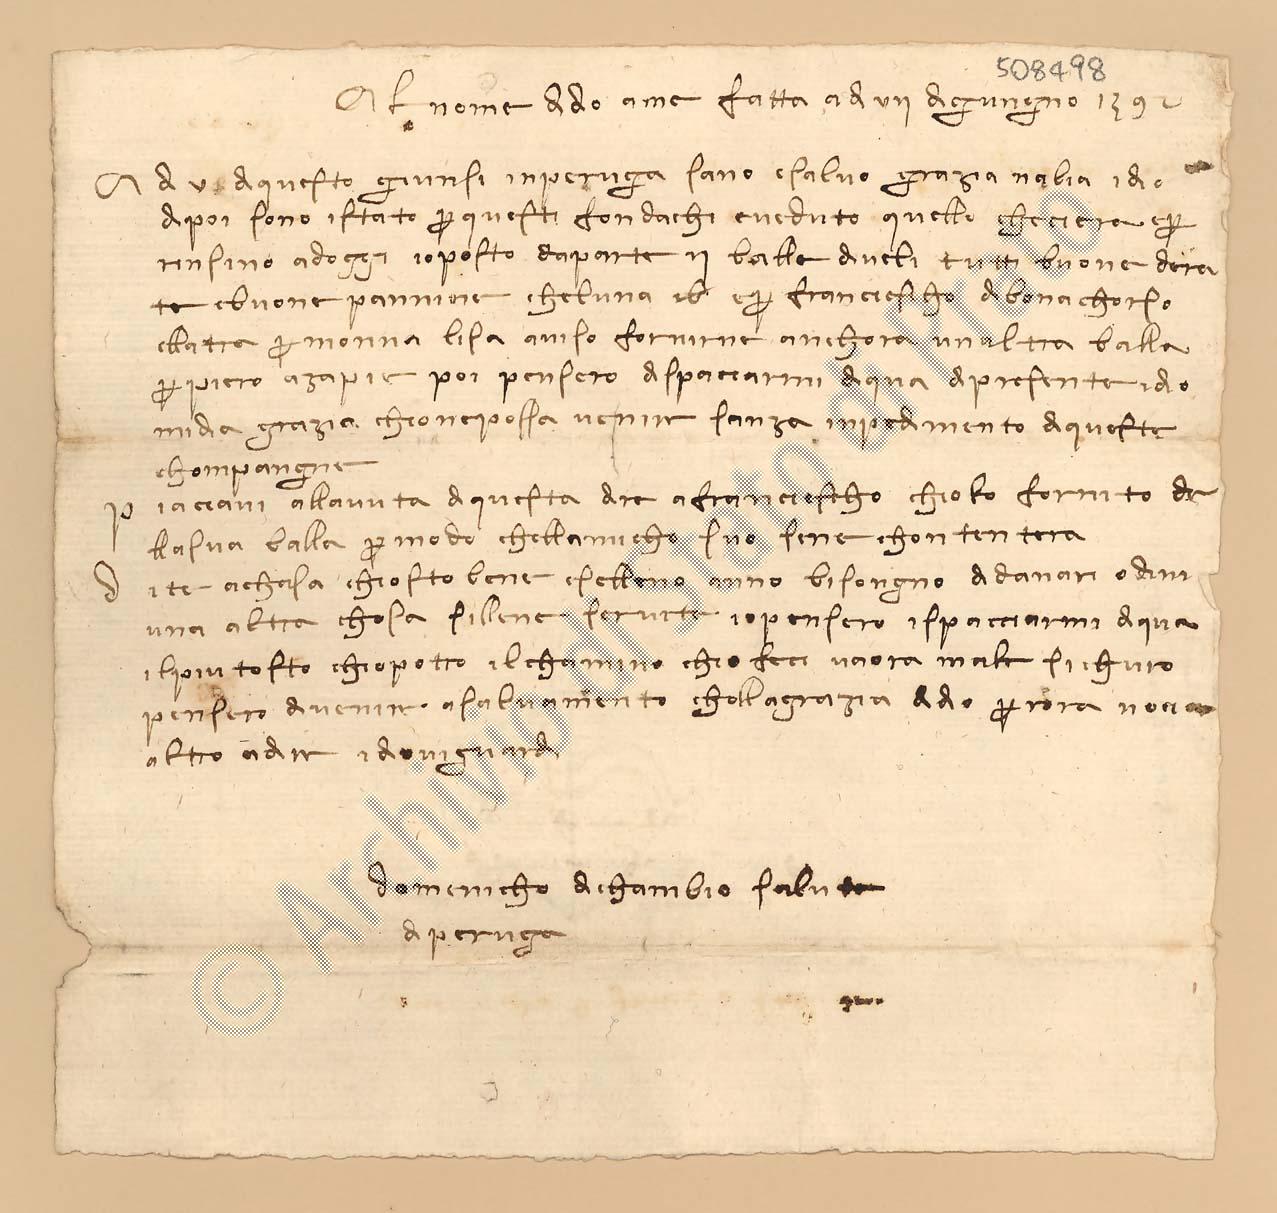 508498
Al nome di dio ame fatta a di vii di gungno 1392
A di v di questo giunsi inperuga sano esalvo grazia nabia idio
dipoi sono istato per questi fondachi eveduto quello checiera eper
insino adoggi io posto daparte ii balle diveli tutti buone dera
te ebuone pannine cheluna ib eper franciescho di bonachorso
ellatra per monna lisa aviso fornirne anchora unaltra balla
per piero azapie poi pensero dispacciarmi diqua dipresente idio
midia grazia chionepossa venire sanza inpedimento diqueste
chompangne
Piacciavi allavuta diquesta dire afranciescho chioloo fornito de
llasua balla per modo chellamicho suo sene chontentera
Dite achasa chiosto bene eselleno anno bisongno didanari odini
una altra chosa sillene servite iopensero ispacciarmi diqua
ilpiu tosto chiopotro ilchamino chio feci vaora male sichuro
pensero divenire asalvamento chollagrazia didio per rora nocia
altro adire idiovi guardi
domenicho dichambio salute
di peruga